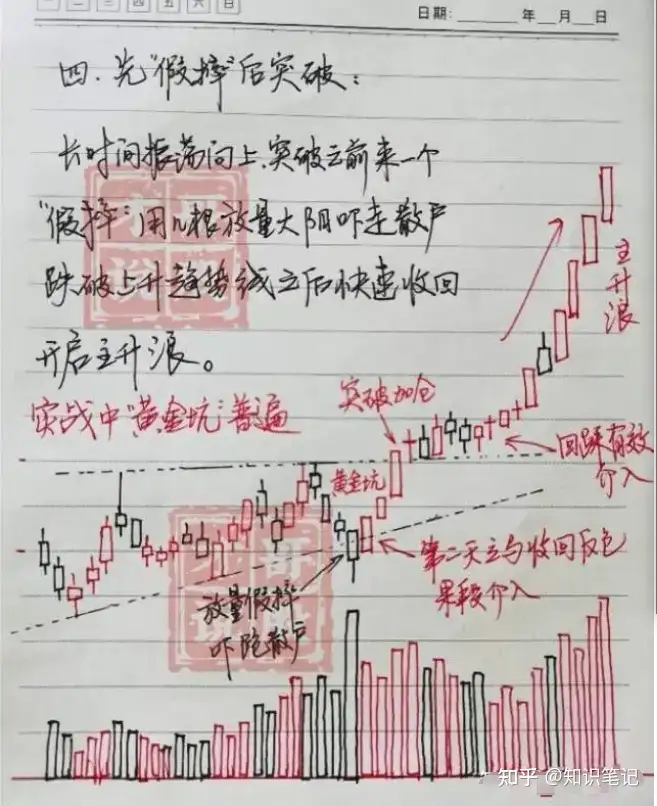 一 二 三 四 五 六 日
日期：______年__月__日
四. 先"假摔"后突破：
长时间振荡向上，突破之前来一个
"假摔"用几根放量大阴吓走散户
跌破上升趋势线之后快速收回
开启主升浪。
实战中"黄金坑"普遍
主升浪
突破加仓
回踩有效
介入
黄金坑
第二天立马收回反包
果段介入
放量假摔
吓跑散户
知乎 @知识笔记